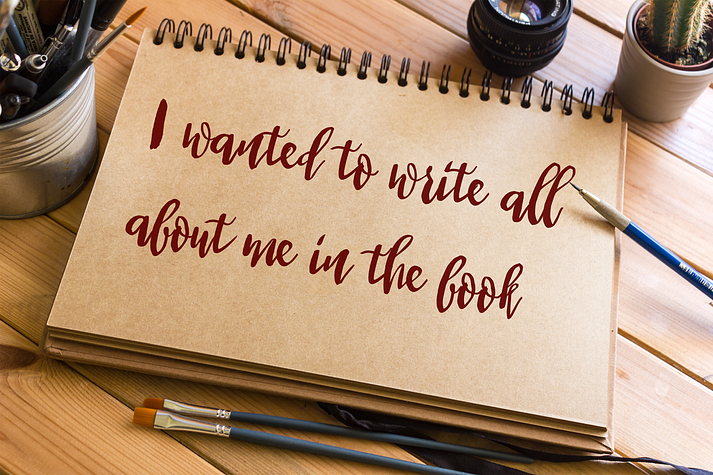 I wanted to write all
about me in the book